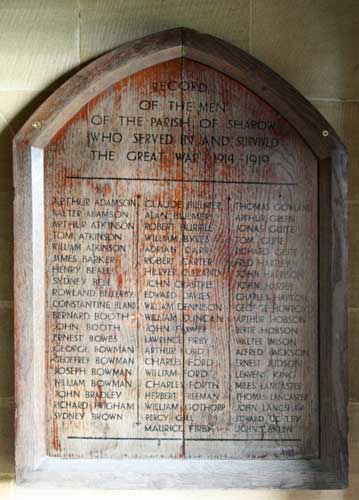 RECORD
OF THE MEN
OF THE PARISH OF SHAROW
WHO SERVED IN AND SURVIVED
THE GREAT WAR 1914-1919
ARTHUR ADAMSON
WALTER ADAMSON
ARTHUR ATKINSON
TOM ATKINSON
WILLIAM ATKINSON
JAMES BARKER
HENRY BEALL
SYDNEY BELL
ROWLAND BELLERBY
CONSTANTINE BLAND
BERNARD BOOTH
JOHN BOOTH
ERNEST BOWES
GEORGE BOWMAN
GEOFFREY BOWMAN
JOSEPH BOWMAN
WILLIAM BOWMAN
JOHN BRADLEY
RICHARD BRIGHAM
SYDNEY BROWN
CLAUDE BULMER
ALAN BULMER
ROBERT BURRILL
WILLIAM
ADRIAN CARR
ROBERT CARTER
CLELAND
JOHN CRABTREE
EDWARD DAVIES
WILLIAM DENNISON
WILLIAM DUNCAN
JOHN FARMER
LAWRENCE FIRBY
ARTHUR FORD
CHARLES FORD
WILLIAM FORD
CHARLES FORTH
HERBERT FREEMAN
WILLIAM GOTHORP
PERCY GILL
MAURICE FIRBY
THOMAS GOWLAND
ARTHUR GREEN
JONAS GUITE
TOM GUITE
RICHARD GUITE
JOHN HARRISON
JOHN
CHARLES HAYTON
GEORGE HOWROYD
ARTHUR HOBSON
BERTIE HOBSON
WALTER INISON
ALFRED JACKSON
ERNEST JUDSON
LEAVENS KING
MILES LANCASTER
THOMAS LANCASTER
JOHN LANGSHAW
EDWARD
JOHN